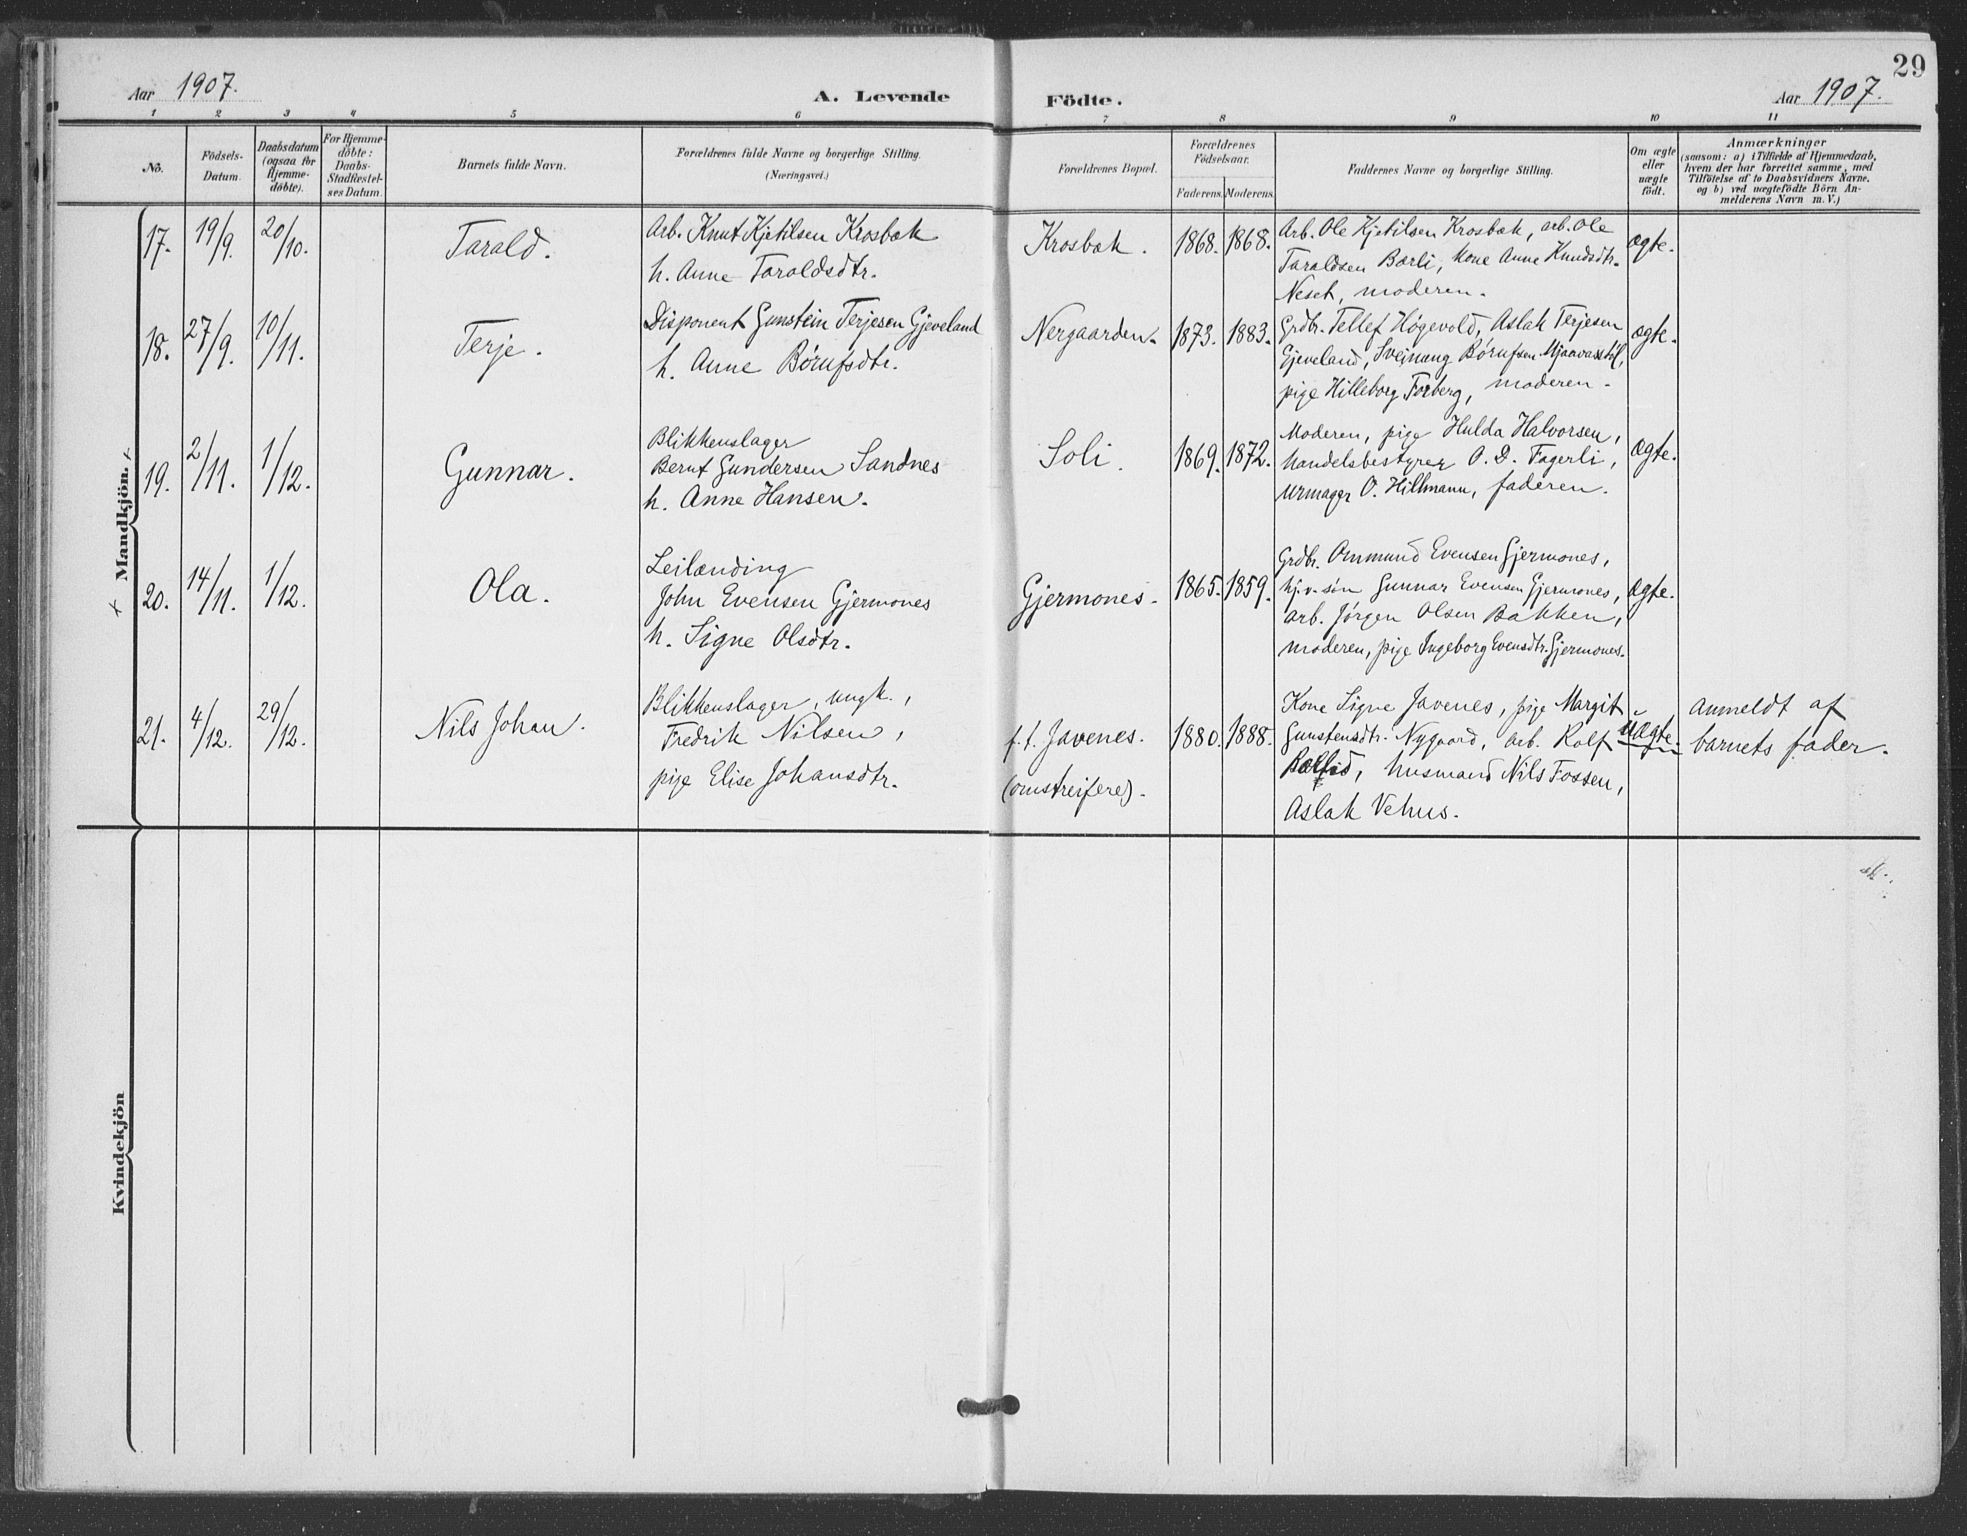 29
Aar 1907. A. Levende Födte. Aar 1907.
1 2 3 4 5 6 7 8 9 10 11
No.
Födsels-
Datum.
Daabsdatum
(ogsaa for
Hjemme-
döbte).
For Hjemme-
döbte:
Daabs-
Stadfæstel-
ses Datum.
Barnets fulde Navn.
Forældrenes fulde Navne og borgerlige Stilling.
(Næringsvei.)
Forældrenes Bopæl.
Forældrenes
Födselsaar.
Faderens. Moderens.
Faddernes Navne og borgerlige Stilling.
Om ægte
eller
uægte
födt.
Anmærkninger
(saasom: a) i Tilfælde af Hjemmedaab,
hvem der har forrettet samme, med
Tilföielse af to Daabsvidners Navne,
og b) ved uægtefödte Börn An-
melderens Navn m. V.)
Mandkjön.
17. 19/9. 20/10. Tarald.
Arb. Knut Kjetilsen Krosbæk
h. Anne Taraldsdtr.
Krosbæk. 1868. 1868.
Arb. Ole Kjetilsen Krosbæk, arb. Ole
Taraldsen Bærli, kone Anne Knudsdtr.
Neset, moderen.
ægte.
18. 27/9. 10/11. Terje.
Disponent Gunstein Terjesen Gjeveland
h. Anne Børufsdtr.
Nergaarden. 1873. 1883.
Grdbr. Tellef Høgevold, Aslak Terjesen
Gjeveland, Sveinung Børufsen Mjaavasstöl,
pige Hilleborg Torberg, moderen.
ægte.
19. 2/11. 1/12. Gunnar.
Blikkenslager
Bernt Gundersen Sandnes
h. Anne Hansen.
Soli. 1869. 1872.
Moderen, pige Hulda Halvorsen,
handelsbestyrer O. D. Fagerli,
urmager O. Hillmann, faderen.
ægte.
20. 14/11. 1/12. Ola.
Leilænding
John Evensen Gjermones
h. Signe Olsdtr.
Gjermones. 1865. 1859.
Grdbr. Ommund Evensen Gjermones,
hj.v. søn Gunnar Evensen Gjermones,
arb. Jørgen Olsen Bakken,
moderen, pige Ingeborg Evensdtr. Gjermones.
ægte.
21. 4/12. 29/12. Nils Johan.
Blikkenslager, ungk.,
Fredrik Nilsen,
pige Elise Johansdtr.
f. t. Javenes.
(omstreifere).
1880. 1888.
Kone Signe Javenes, pige Margit
Gunstensdtr. Nygaard, arb. Rolf
husmand Nils Fossen,
Aslak Vehus.
uægte.
Anmeldt af
barnets fader.
Kvindekjön